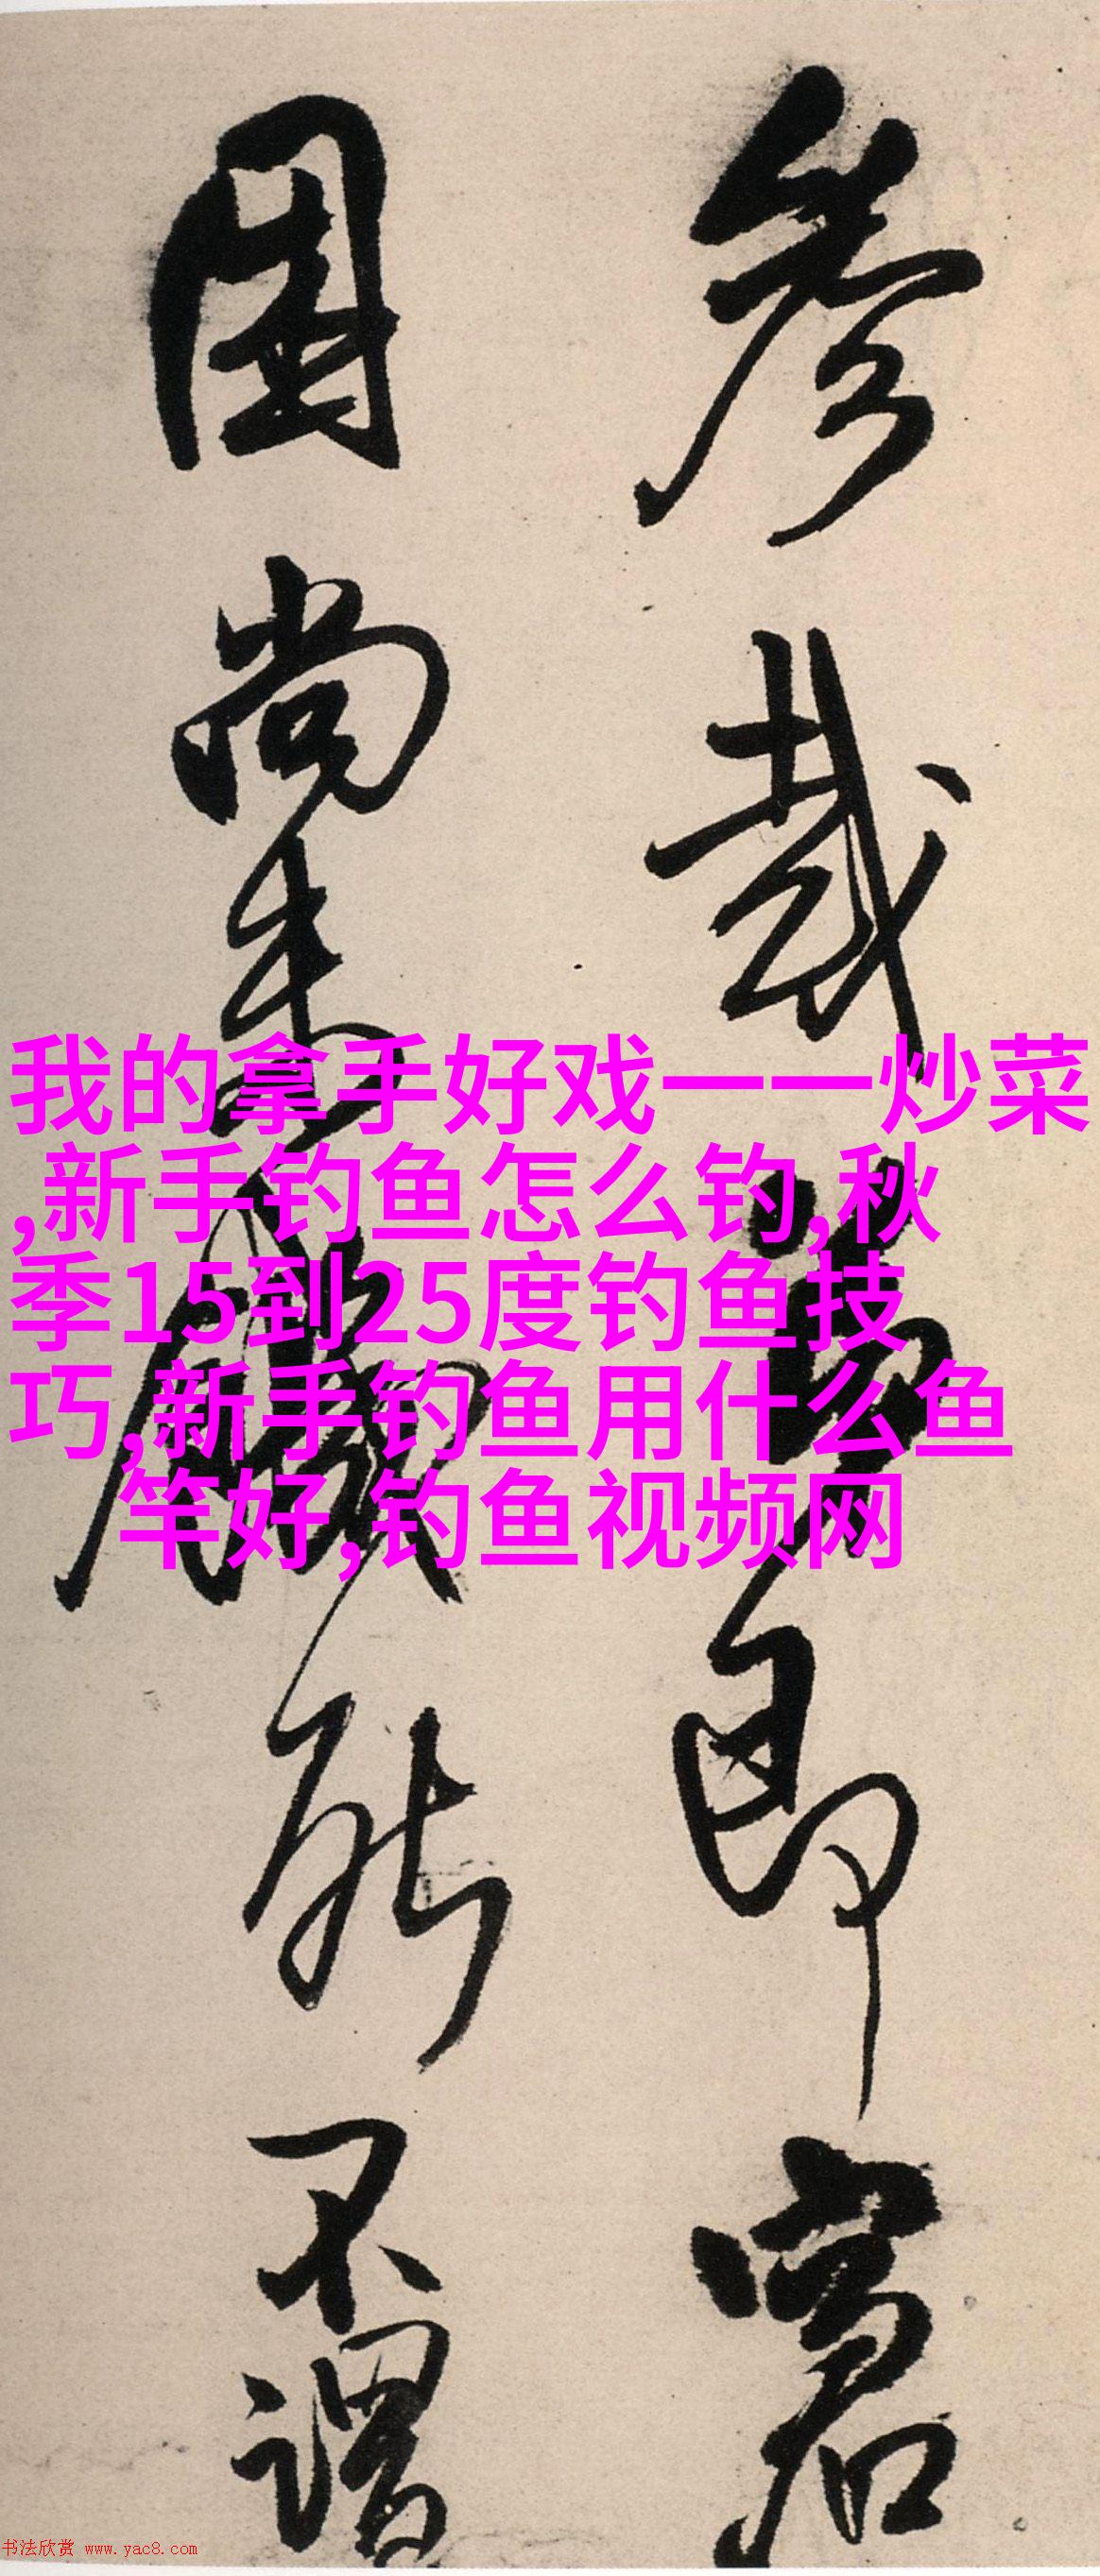 参哉
即宫
困尚未
能不谓
我的拿手好戏一一炒菜
,新手钓鱼怎么钓,秋
季15到25度钓鱼技
巧,新手钓鱼用什么鱼
竿好,钓鱼视频网
书法欣赏 www.yac8.com